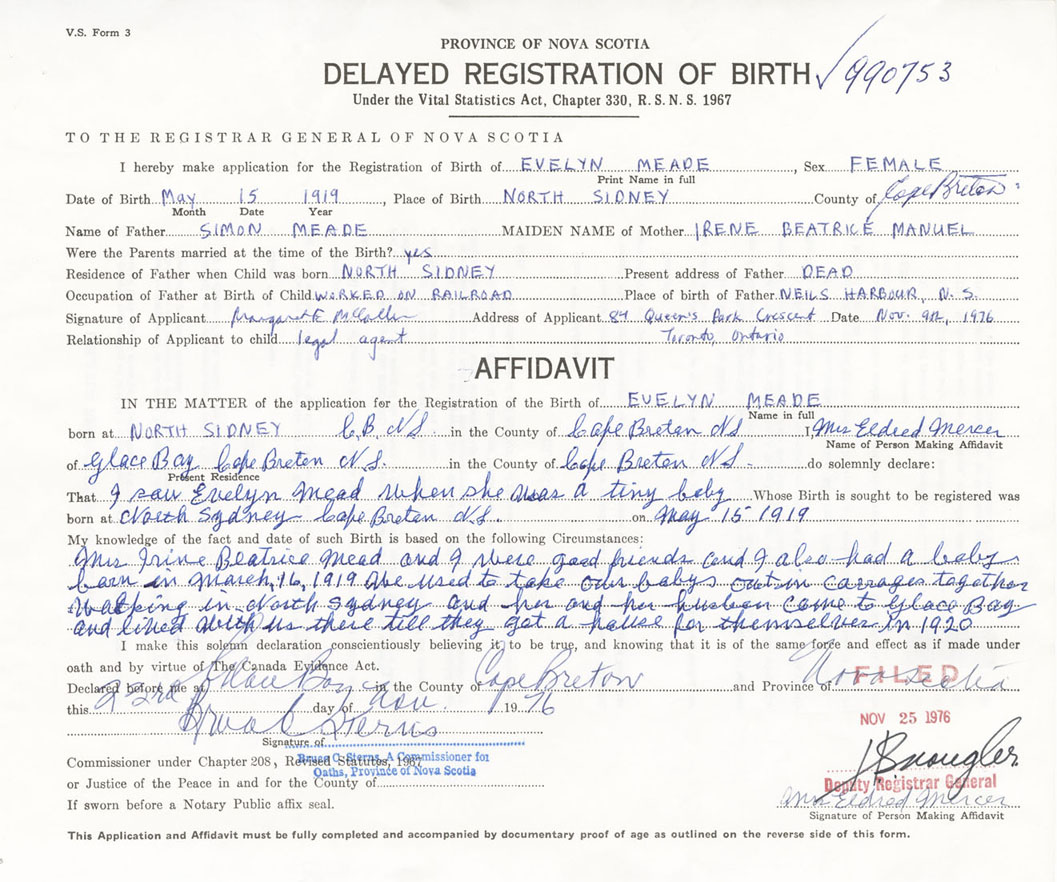 V.S. Form 3
PROVINCE OF NOVA SCOTIA
DELAYED REGISTRATION OF BIRTH ✓ 990753
Under the Vital Statistics Act, Chapter 330, R. S. N. S. 1967
TO THE REGISTRAR GENERAL OF NOVA SCOTIA
I hereby make application for the Registration of Birth of EVELYN MEADE, Sex FEMALE
Print Name in full
Date of Birth May 15 1919, Place of Birth NORTH SIDNEY County of Cape Breton
Month Date Year
Name of Father SIMON MEADE MAIDEN NAME of Mother IRENE BEATRICE MANUEL
Were the Parents married at the time of the Birth? yes
Residence of Father when Child was born NORTH SIDNEY Present address of Father DEAD
Occupation of Father at Birth of Child WORKED ON RAILROAD Place of birth of Father NEILS HARBOUR, N.S.
Signature of Applicant Margaret E Address of Applicant 84 Queen's Park Crescent Date Nov. 9th, 1976
Relationship of Applicant to child legal agent Toronto, Ontario
AFFIDAVIT
IN THE MATTER of the application for the Registration of the Birth of EVELYN MEADE
Name in full
born at NORTH SIDNEY C.B. N.S. in the County of Cape Breton NS I, Mrs Eldred Mercer
Name of Person Making Affidavit
of Glace Bay Cape Breton N.S. in the County of Cape Breton N.S. do solemnly declare:
Present Residence
That I saw Evelyn Mead when she was a tiny baby Whose Birth is sought to be registered was
born at North Sydney Cape Breton N.S. on May 15 1919
My knowledge of the fact and date of such Birth is based on the following Circumstances:
Mrs Irine Beatrice Mead and I were good friends and I also had a baby
born in March, 16, 1919 We used to take our babys out in carrages together
walking in North Sydney and her and her husben come to Glace Bay
and lived with us there till they got a house for themselves in 1920
I make this solemn declaration conscientiously believing it to be true, and knowing that it is of the same force and effect as if made under
oath and by virtue of The Canada Evidence Act.
Declared before me at Glace Bay in the County of Cape Breton and Province of Nova Scotia
FILED
this 23rd day of Nov. 1976
NOV 25 1976
Bruce C Sterns
Signature of
Bruce C. Sterns, A Commissioner for
Oaths, Province of Nova Scotia
Commissioner under Chapter 208, Revised Statutes, 1967
or Justice of the Peace in and for the County of
Deputy Registrar General
Mrs Eldred Mercer
If sworn before a Notary Public affix seal.
Signature of Person Making Affidavit
This Application and Affidavit must be fully completed and accompanied by documentary proof of age as outlined on the reverse side of this form.